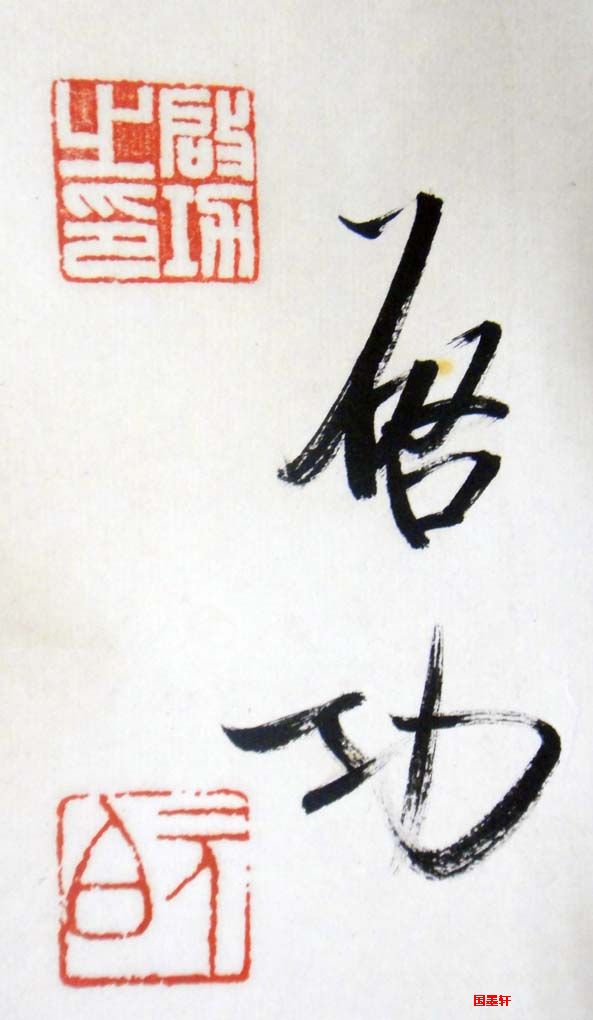 启功
启功之印
元白
国墨轩